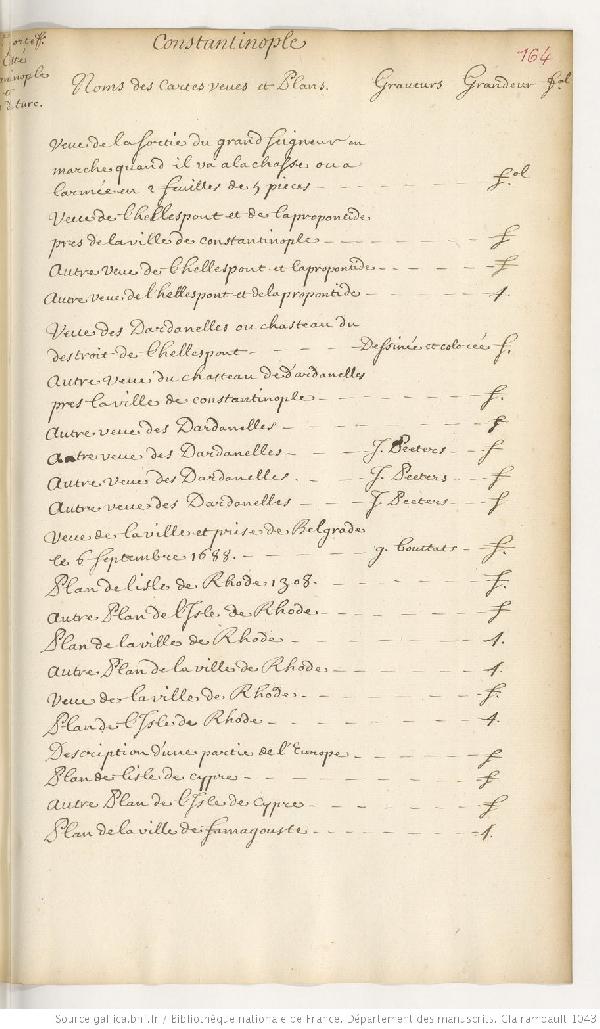 Constantinople
164
Noms des Cartes veues et Plans. Graveurs Grandeur fol
Veue de la sortie du grand seigneur en
marche quand il va a la chasse ou a
l'armée en 2 feuilles de 5 pieces - - - - - f.ol
Veue de l'hellespont et de la propontide
pres de la ville de constantinople - - - - - f
Autre veue de l'hellespont et la propontide - - - - f
Autre veue de l'hellespont et de la propontide - - - - 4.
Veue des Dardanelles ou chasteau du
destroit de l'hellespont - - - - Dessinée et colorée f.
Autre veue du chasteau de Dardanelles
pres la ville de constantinople - - - - - f.
Autre veue des Dardanelles - - - - - f
Autre veue des Dardanelles - - J. Peeters - - f
Autre veue des Dardanelles - - J. Peeters - - f
Autre veue des Dardanelles - - J. Peeters - - f
Veue de la ville et prise de Belgrade
le 6 septembre 1688. - - - - g. bouttats - - f.
Plan de l'isle de Rhode 1308. - - - - - f.
Autre Plan de l'Isle de Rhode - - - - - f
Plan de la ville de Rhode - - - - - 4.
Autre Plan de la ville de Rhode - - - - - 4.
Veue de la ville de Rhode - - - - - f.
Plan de l'Isle de Rhode - - - - - 4.
Description d'une partie de l'Europe - - - - - f
Plan de l'isle de cypre - - - - - f
Autre Plan de l'Isle de Cypre - - - - - f
Plan de la ville de famagouste - - - - - 4.
Source gallica.bnf.fr / Bibliothèque nationale de France. Département des manuscrits. Clairambault 1043